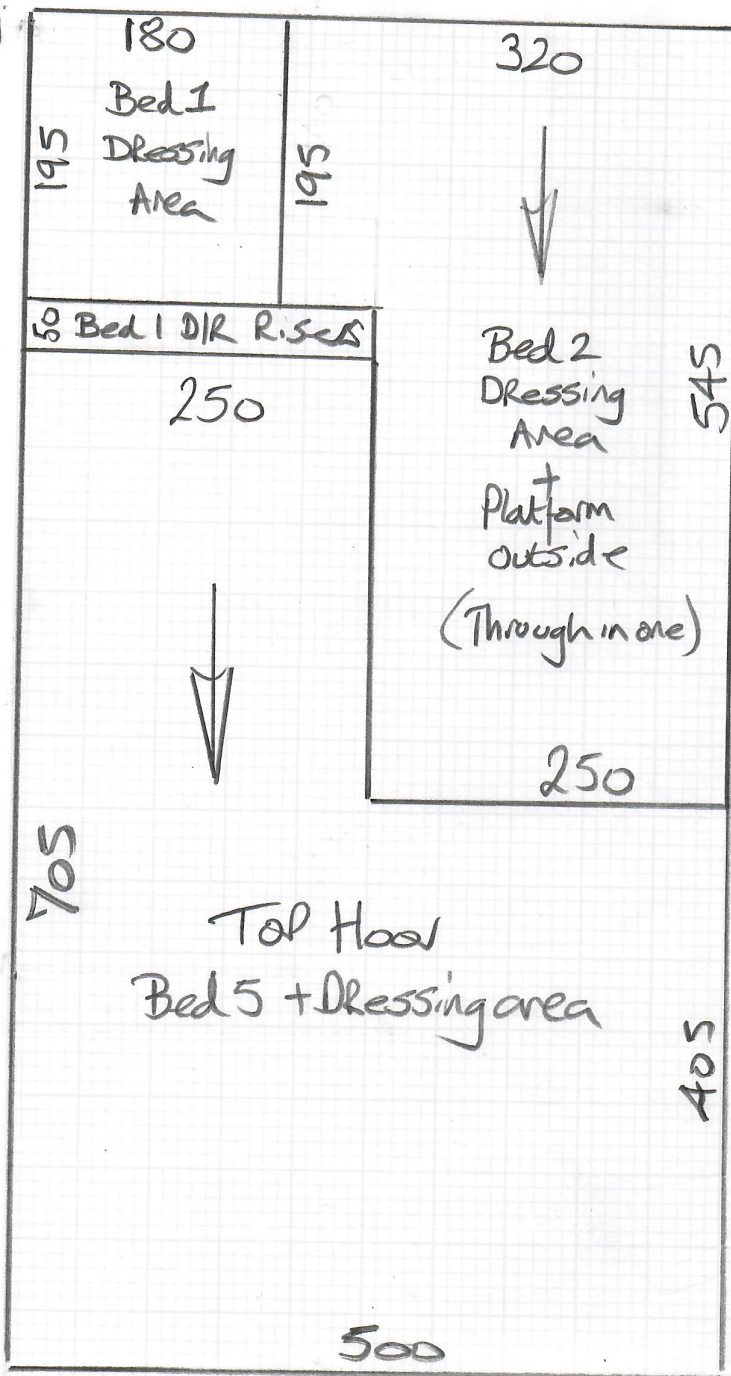 180
Bed 1
Dressing
Area
195
195
320
50 Bed 1 D/R Risers
250
Bed 2
Dressing
Area
+
Platform
outside
(Through in one)
545
250
705
Top Floor
Bed 5 + Dressing area
405
500